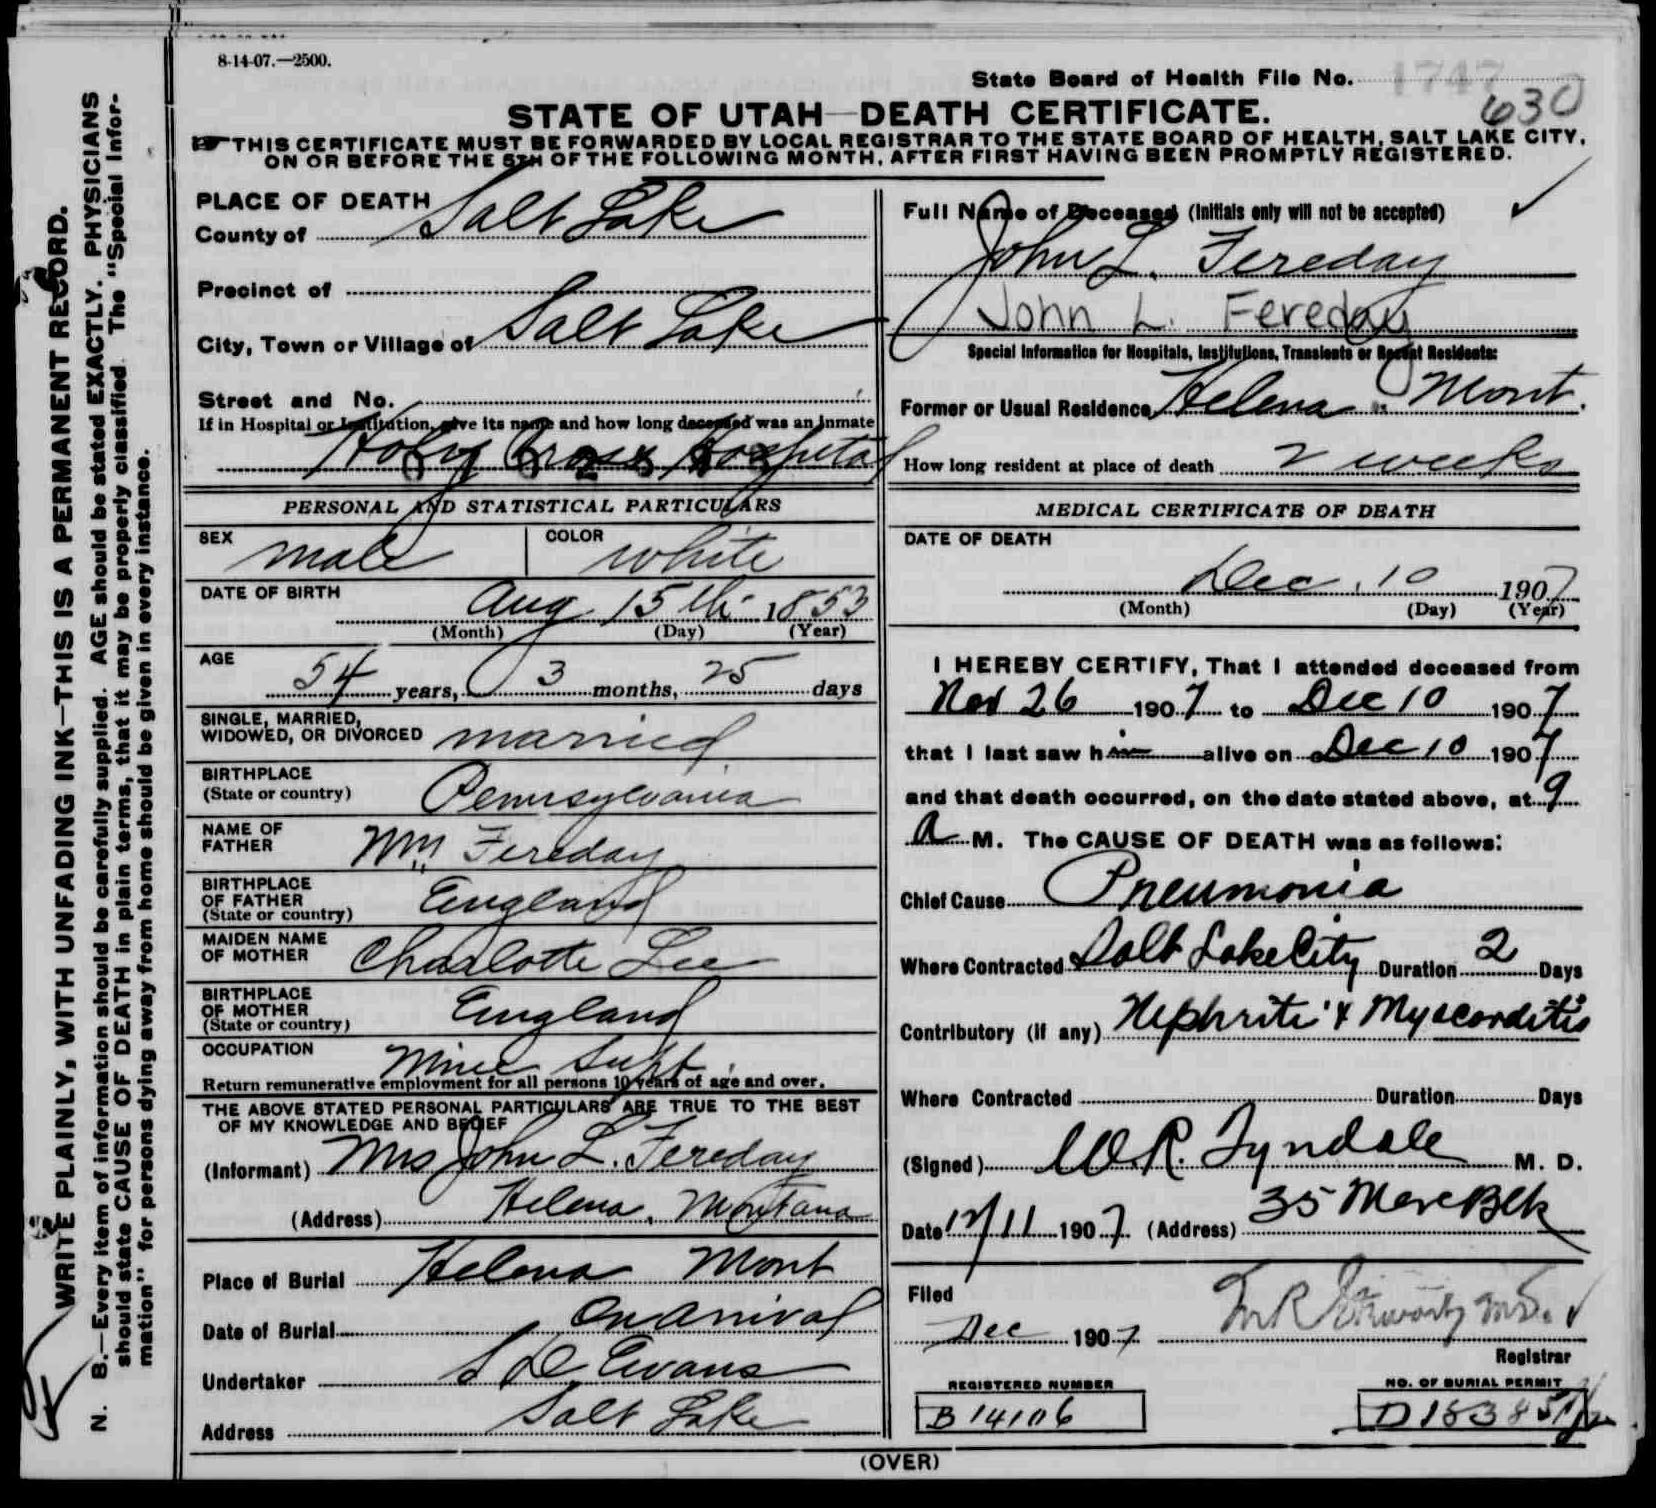 8-14-07.—2500.
State Board of Health File No. 1747
630
STATE OF UTAH—DEATH CERTIFICATE.
THIS CERTIFICATE MUST BE FORWARDED BY LOCAL REGISTRAR TO THE STATE BOARD OF HEALTH, SALT LAKE CITY,
ON OR BEFORE THE 5TH OF THE FOLLOWING MONTH, AFTER FIRST HAVING BEEN PROMPTLY REGISTERED.
WRITE PLAINLY, WITH UNFADING INK—THIS IS A PERMANENT RECORD.
N. B.—Every item of information should be carefully supplied. AGE should be stated EXACTLY. PHYSICIANS
should state CAUSE OF DEATH in plain terms, that it may be properly classified. The "Special Infor-
mation" for persons dying away from home should be given in every instance.
PLACE OF DEATH
County of Salt Lake
Precinct of
City, Town or Village of Salt Lake
Street and No.
If in Hospital or Institution, give its name and how long deceased was an Inmate
Holy Cross Hospital
PERSONAL AND STATISTICAL PARTICULARS
SEX male COLOR white
DATE OF BIRTH Aug. 15th 1853
(Month) (Day) (Year)
AGE 54 years, 3 months, 25 days
SINGLE, MARRIED,
WIDOWED, OR DIVORCED married
BIRTHPLACE
(State or country) Pennsylvania
NAME OF
FATHER Wm Fereday
BIRTHPLACE
OF FATHER
(State or country) England
MAIDEN NAME
OF MOTHER Charlotte Lee
BIRTHPLACE
OF MOTHER
(State or country) England
OCCUPATION Mine Supt.
Return remunerative employment for all persons 10 years of age and over.
THE ABOVE STATED PERSONAL PARTICULARS ARE TRUE TO THE BEST
OF MY KNOWLEDGE AND BELIEF
(Informant) Mrs John L. Fereday
(Address) Helena, Montana
Place of Burial Helena Mont
Date of Burial On Arrival
Undertaker S D Evans
Address Salt Lake
Full Name of Deceased (Initials only will not be accepted)
John L. Fereday
John L. Fereday
Special Information for Hospitals, Institutions, Transients or Recent Residents:
Former or Usual Residence Helena Mont.
How long resident at place of death 2 weeks
MEDICAL CERTIFICATE OF DEATH
DATE OF DEATH
Dec. 10 1907
(Month) (Day) (Year)
I HEREBY CERTIFY, That I attended deceased from
Nov 26 1907 to Dec 10 1907
that I last saw him alive on Dec 10 1907
and that death occurred, on the date stated above, at 9
A M. The CAUSE OF DEATH was as follows:
Chief Cause Pneumonia
Where Contracted Salt Lake City Duration 2 Days
Contributory (if any) Nephritis & Myocarditis
Where Contracted Duration Days
(Signed) W.R. Tyndale M. D.
Date 12/11 1907 (Address) 35 Merc Blk
Filed
Dec 1907
Registrar
REGISTERED NUMBER
B 14106
NO. OF BURIAL PERMIT
(OVER)